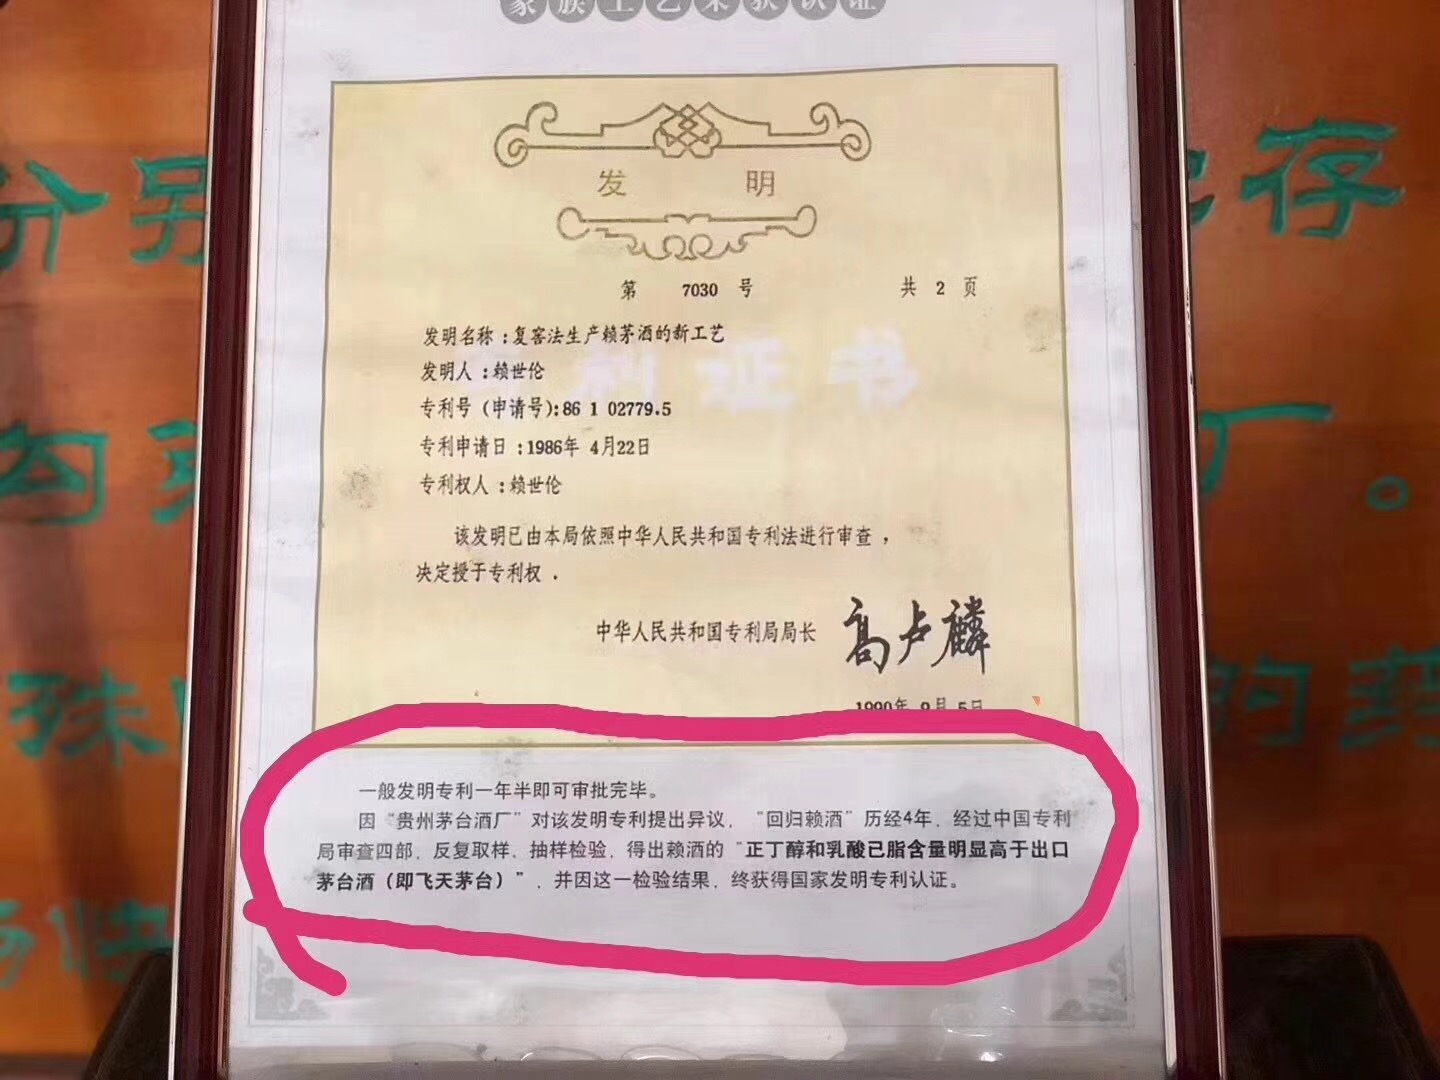 家族工艺荣获认证
发明
第 7030 号 共 2 页
发明名称：复窖法生产赖茅酒的新工艺
发明人：赖世伦
专利号（申请号）：86 1 02779.5
专利申请日：1986年 4月22日
专利权人：赖世伦
利证书
该发明已由本局依照中华人民共和国专利法进行审查，
决定授于专利权．
中华人民共和国专利局局长 高卢麟
1990年 9月 5日
一般发明专利一年半即可审批完毕。
因“贵州茅台酒厂”对该发明专利提出异议，“回归赖酒”历经4年，经过中国专利
局审查四部，反复取样、抽样检验，得出赖酒的“正丁醇和乳酸已脂含量明显高于出口
茅台酒（即飞天茅台）”，并因这一检验结果，终获得国家发明专利认证。
存
丁。
殊
的